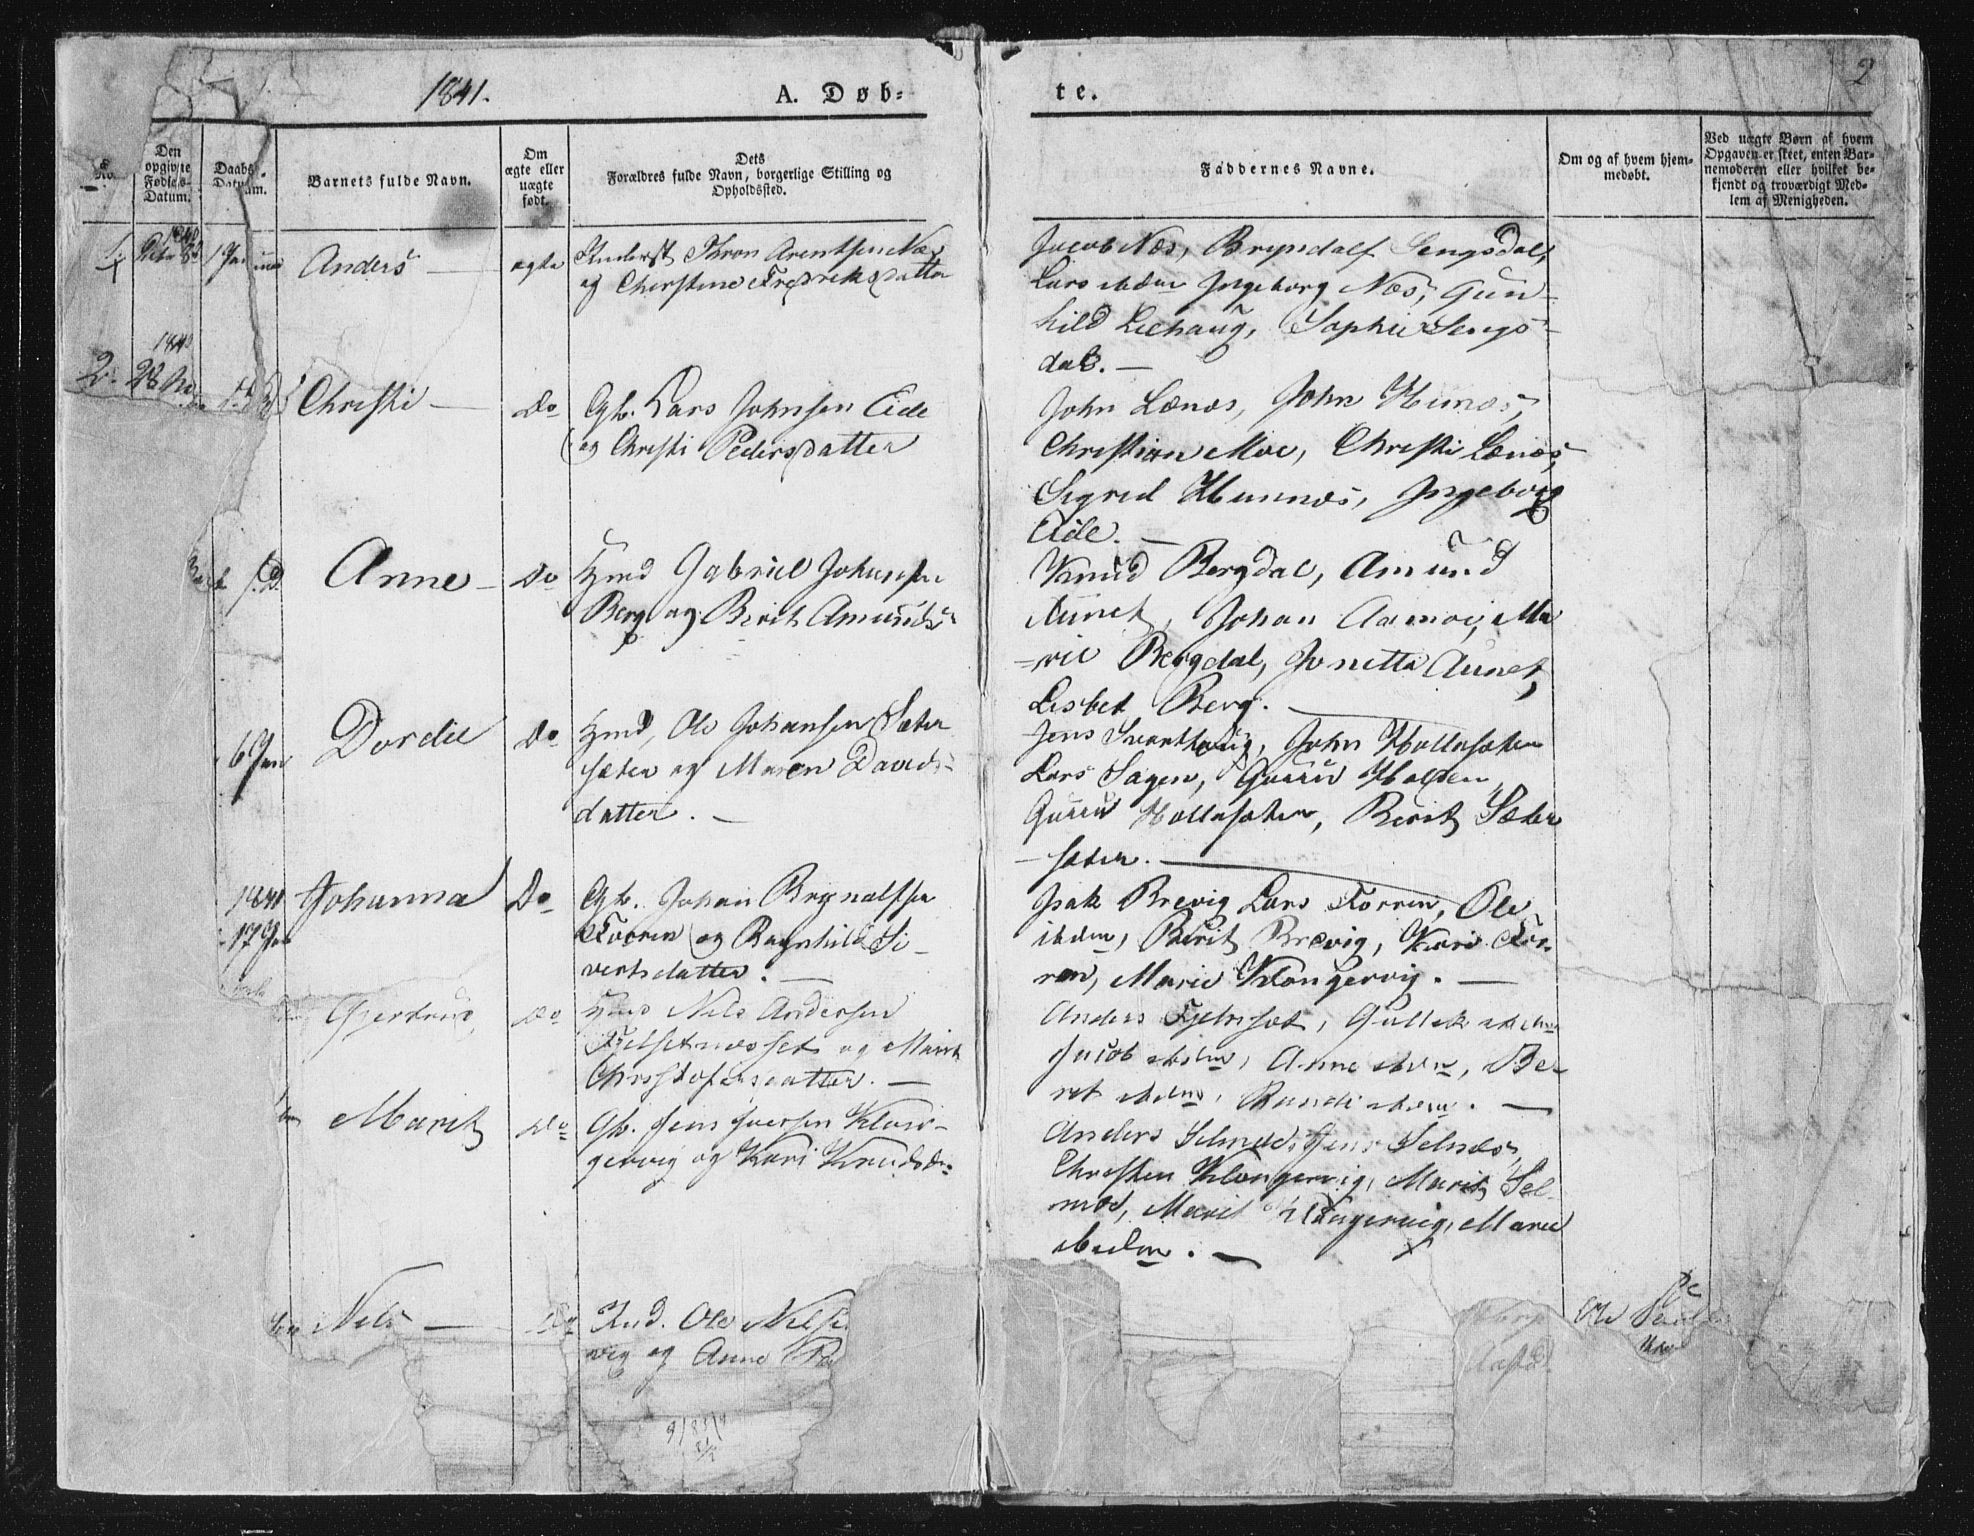 2
1841.
A. Døb-
te.
No.
Den
opgivne
Fødsels-
Datum.
Daabs-
Datum.
Barnets fulde Navn.
Om
ægte eller
uægte
født.
Dets
Forældres fulde Navn, borgerlige Stilling og
Opholdssted.
Faddernes Navne.
Om og af hvem hjem-
medøbt.
Ved uægte Børn af hvem
Opgaven er skeet, enten Bar-
nemoderen eller hvilket be-
kjendt og troværdigt Med-
lem af Menigheden.
1
1840
Anders —
ægte
Arentsen Næs
og Cherstine Fredriksdatter
Jacob Næs, Bryndalf Lengsdal,
Lars ibdm Ingeborg Næs, Gun-
hild Liehaug, Sophie Lengs-
dal. —
2.
1840
28 No
Christi —
Do
Gbr. Lars Johnsen Eide
og Christi Pedersdatter
John Lænæs, John Himæs,
Christian Moe, Christi Lænæs,
Sigrid Hunnæs, Ingeborg
Eide. —
Anne —
Do
Hmd Gabriel Johansen
Berg og Berit Amunds
Knud Bergdal, Amund
Aunet, Johan Aamoe, Ma
-rie Bergdal, Jonetta Aunet,
Lisbet Berg. —
6 Jan
Dordie
Do
Hmd, Ole Johansen Sæter
sæter og Maren Davids-
datter. —
Jens Svarthaug, John Hallasæter
Lars Sagen, Guruu Halsen,
Guruu Hallasæter, Berit Sæter
-sæter. —
1841
17 Jan
Johanna
Do
Gbr. Johan Brynalfsen
Torren og Ragnhild Si-
vertsdatter. —
Isak Brevig Lars Torren, Ole
ibdm, Berit Brevig, Kari Tor-
ren, Marie Klongervig. —
Gjertrud,
Do
Hmd Nils Andersen
og Marit
Christofersdatter. —
Anders Fjelnset, Gullek ibdm
Jacob ibdm, Anne ibdm, Be-
ret ibdm, Randi ibdm. —
Marit
Do
Gb. Jens Iversen Klon-
gervig og Kari Knudsdr
Anders Selnæs, Jens Selnæs,
Christen Klongervig, Marit Sel-
næs, Marit Klongervig, Marie
ibidm. —
Nils —
Do
Hmd. Ole Nilse
vig og Anne
Ole